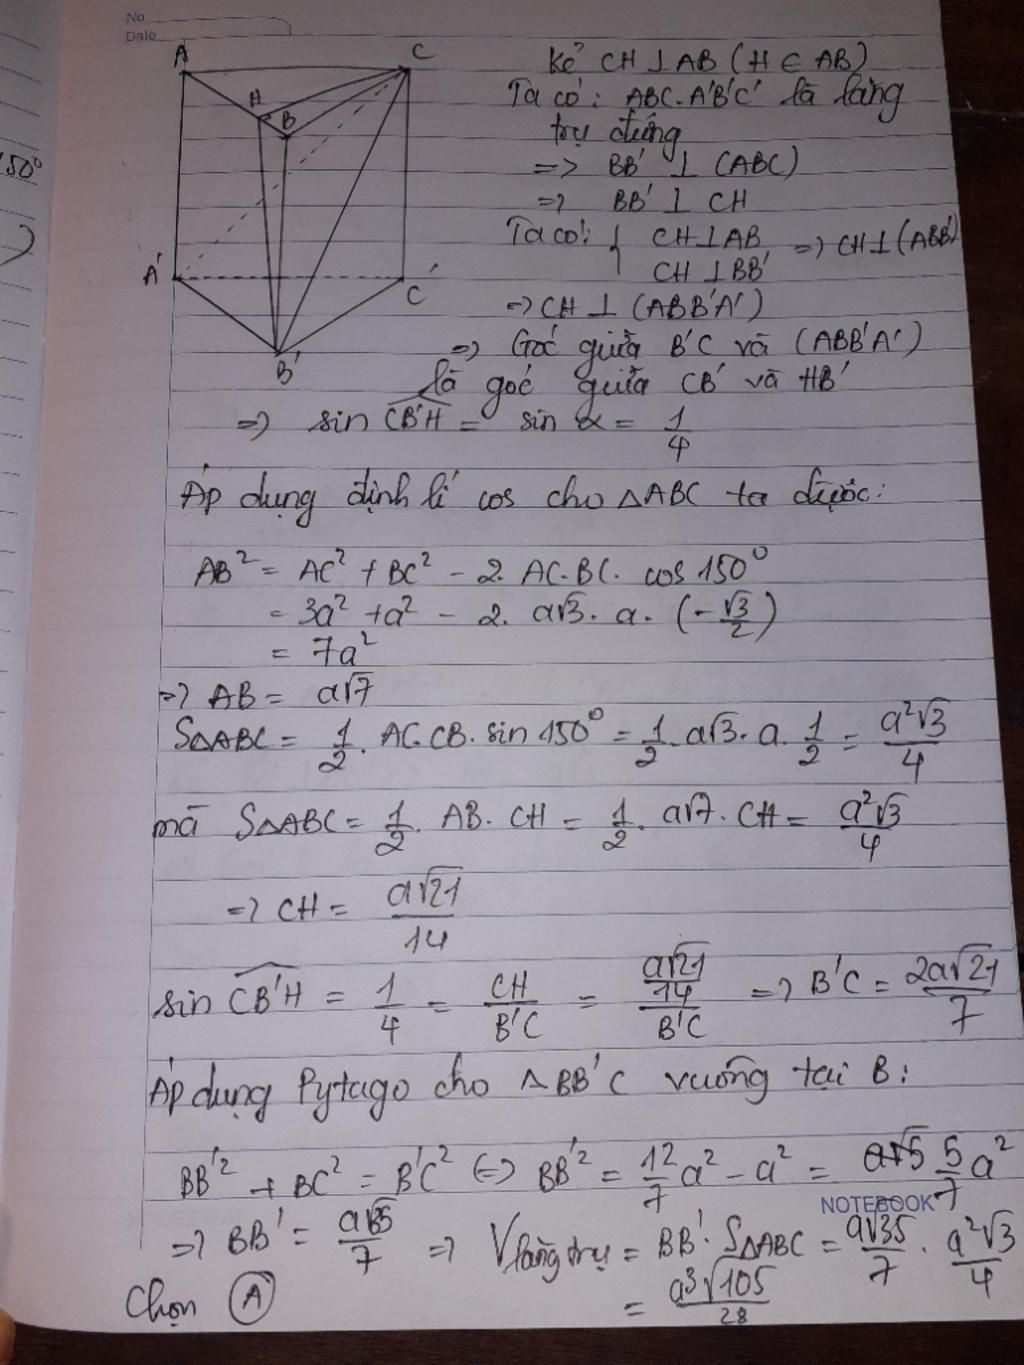 No
Date
A
C
H
B
A'
C'
B'
150°
Kẻ CH ⊥ AB (H ∈ AB)
Ta có: ABC.A'B'C' là lăng
trụ đứng
=> BB' ⊥ (ABC)
=> BB' ⊥ CH
Ta có: { CH ⊥ AB => CH ⊥ (ABB')
CH ⊥ BB'
=> CH ⊥ (ABB'A')
=> Góc giữa B'C và (ABB'A')
là góc giữa CB' và HB'
=> sin CB'H = sin α = 1/4
Áp dụng định lí cos cho △ABC ta được:
AB² = AC² + BC² - 2. AC.BC. cos 150°
= 3a² + a² - 2. a√3. a. (-√3/2)
= 7a²
=> AB = a√7
S△ABC = 1/2. AC.CB. sin 150° = 1/2. a√3. a. 1/2 = a²√3/4
mà S△ABC = 1/2. AB. CH = 1/2. a√7. CH = a²√3/4
=> CH = a√21/14
sin CB'H = 1/4 = CH/B'C = (a√21/14)/B'C => B'C = 2a√21/7
Áp dụng Pytago cho △BB'C vuông tại B:
BB'² + BC² = B'C² <=> BB'² = 12/7 a² - a² = 5/7 a²
NOTEBOOK
=> BB' = a√35/7 => V lăng trụ = BB'. S△ABC = a√35/7 . a²√3/4
= a³√105/28
Chọn A